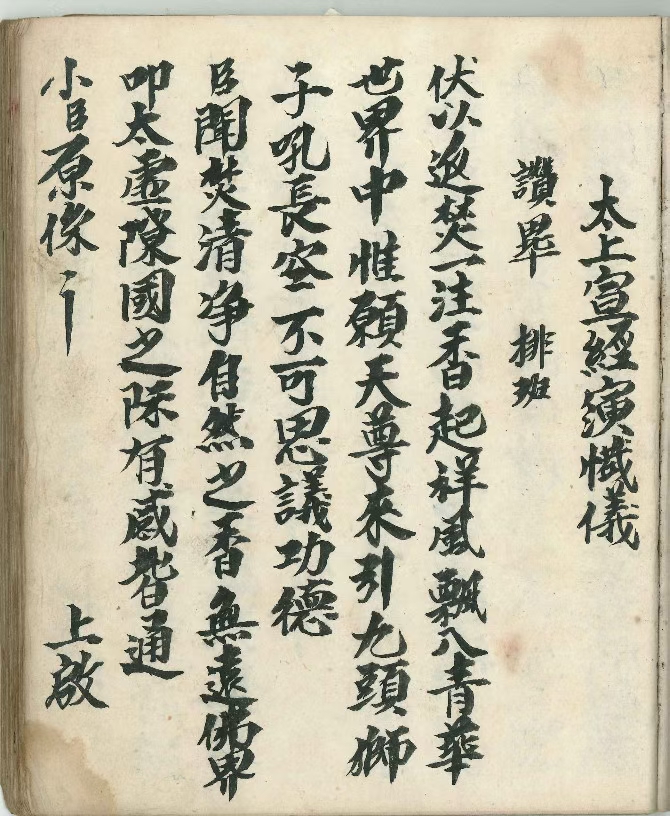 太上宣經演懺儀
讚畢 排班
伏以返焚一注香起祥風飄八青華
世界中惟願天尊來引九頭獅
子吼長空不可思議功德
臣聞焚清净自然之香無遠佛界
叩太虚隙國之際有感皆通
小臣原係 上啟